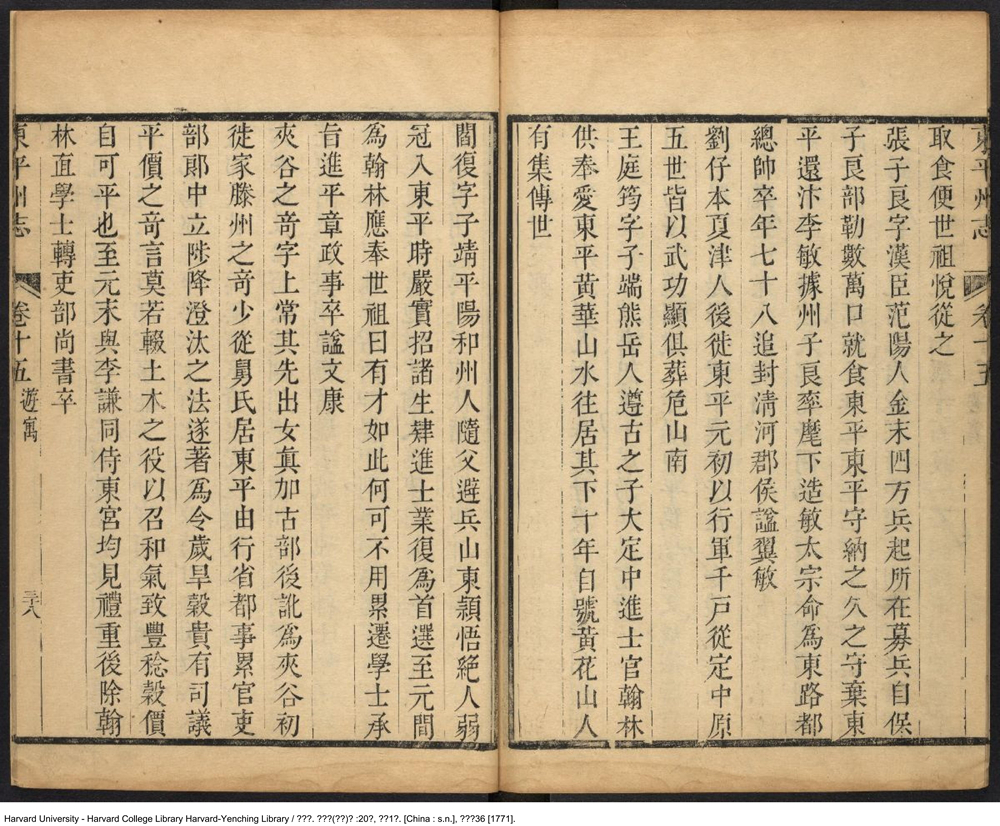 東平州志
卷十五
取食便世祖悅從之
張子良字漢臣范陽人金末四方兵起所在募兵自保
子良部勒數萬口就食東平東平守納之久之守棄東
平還汴李敏據州子良率麾下造敏太宗命為東路都
總帥卒年七十八追封清河郡侯諡翼敏
劉仔本夏津人後徙東平元初以行軍千戶從定中原
五世皆以武功顯俱葬危山南
王庭筠字子端熊岳人遵古之子大定中進士官翰林
供奉愛東平黃華山水往居其下十年自號黃花山人
有集傳世
閻復字子靖平陽和州人隨父避兵山東穎悟絕人弱
冠入東平時嚴實招諸生肄進士業復為首選至元間
為翰林應奉世祖曰有才如此何可不用累遷學士承
旨進平章政事卒諡文康
夾谷之奇字上常其先出女真加古部後訛為夾谷初
徙家滕州之奇少從舅氏居東平由行省都事累官吏
部郎中立陟降澄汰之法遂著為令歲旱穀貴有司議
平價之奇言莫若輟土木之役以召和氣致豐稔穀價
自可平也至元末與李謙同侍東宮均見禮重後除翰
林直學士轉吏部尚書卒
東平州志
卷十五
遊寓
三十八
Harvard University - Harvard College Library Harvard-Yenching Library / ???. ???(??)? :20?, ??1?. [China : s.n.], ???36 [1771].